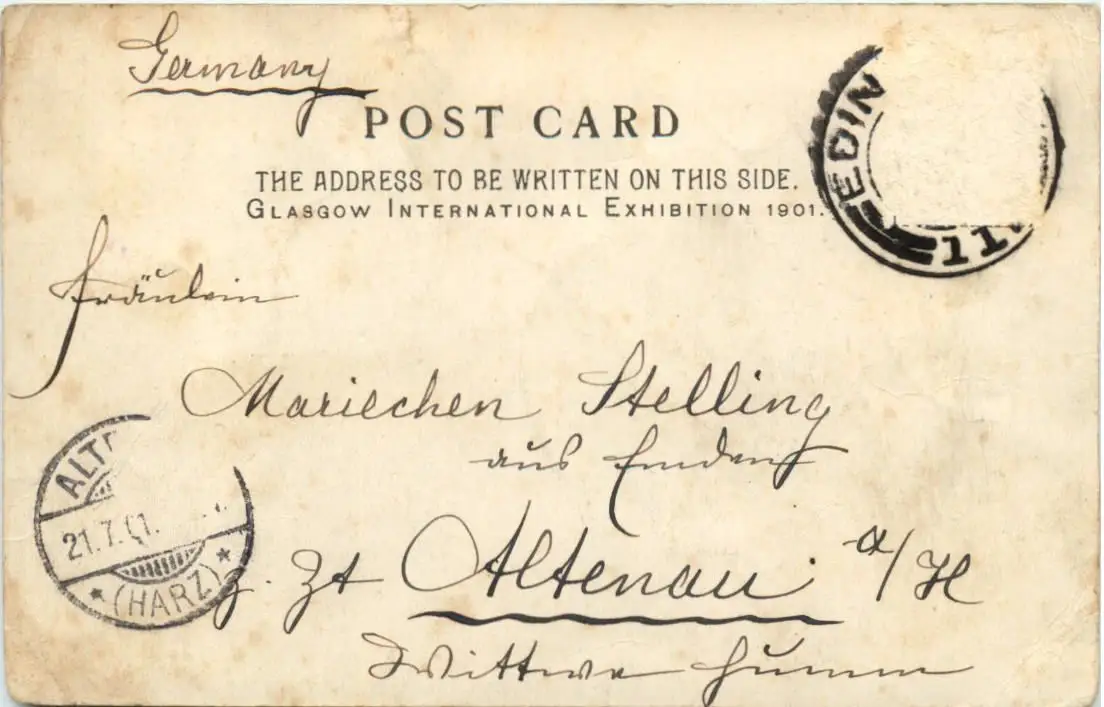 Germany
POST CARD
THE ADDRESS TO BE WRITTEN ON THIS SIDE.
GLASGOW INTERNATIONAL EXHIBITION 1901.
EDIN
11
Fräulein
Mariechen Stelling
aus Emden
ALTE
21.7.01.
(HARZ)
z. Zt Altenau a/H
Wittwe Humm